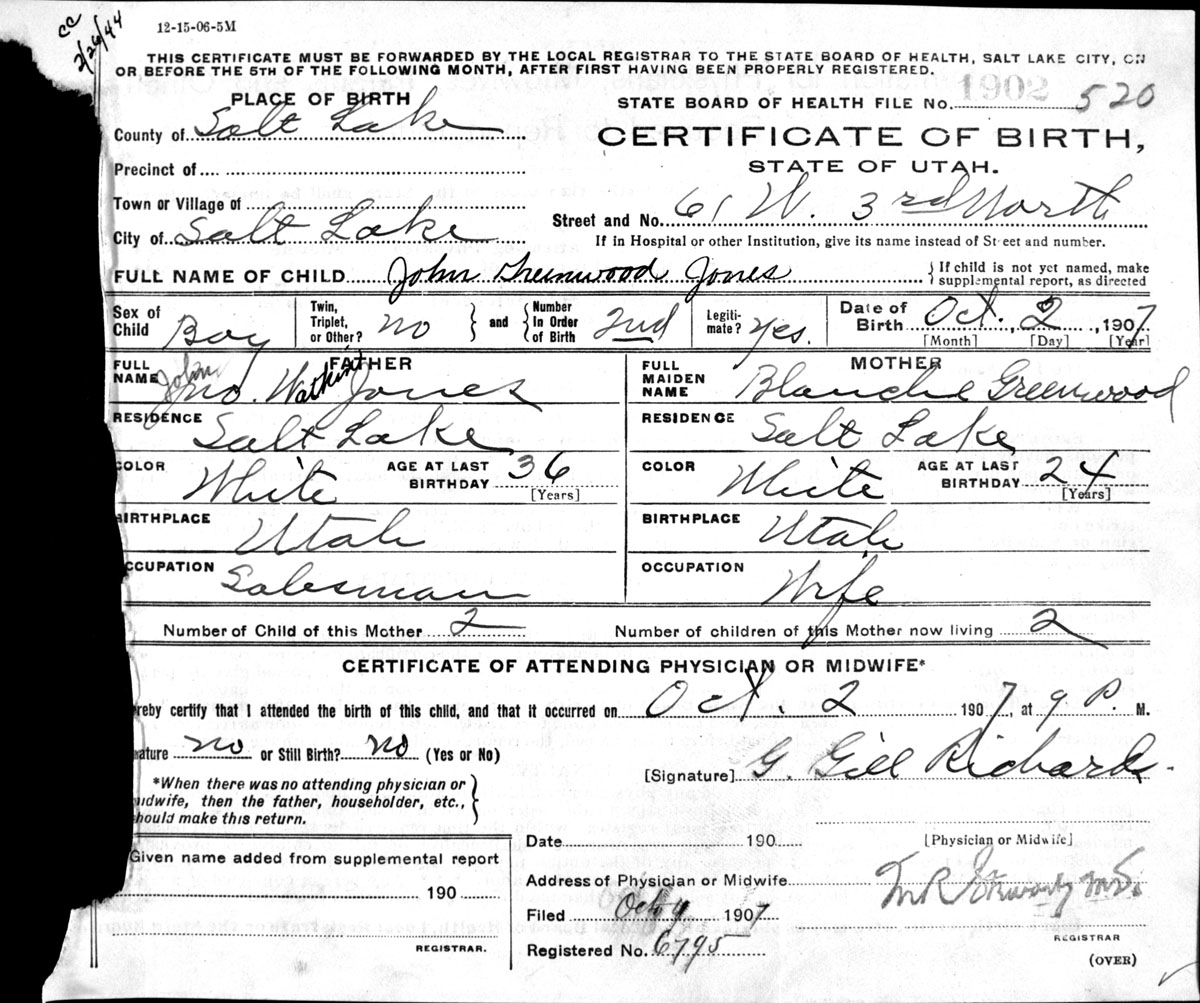 CC
2/26/44
12-15-06-5M
THIS CERTIFICATE MUST BE FORWARDED BY THE LOCAL REGISTRAR TO THE STATE BOARD OF HEALTH, SALT LAKE CITY, ON
OR BEFORE THE 5TH OF THE FOLLOWING MONTH, AFTER FIRST HAVING BEEN PROPERLY REGISTERED.
PLACE OF BIRTH
County of Salt Lake
Precinct of
Town or Village of
City of Salt Lake
STATE BOARD OF HEALTH FILE No. 1902 520
CERTIFICATE OF BIRTH,
STATE OF UTAH.
Street and No. 61 W. 3rd North
If in Hospital or other Institution, give its name instead of Street and number.
FULL NAME OF CHILD John Greenwood Jones { If child is not yet named, make
supplemental report, as directed
Sex of Child Boy
Twin, Triplet, or Other? no } and { Number In Order of Birth 2nd
Legiti-mate? Yes.
Date of Birth Oct. 2, 1907
[Month] [Day] [Year]
FATHER
FULL NAME John Jno. Watkin Jones
RESIDENCE Salt Lake
COLOR White AGE AT LAST BIRTHDAY 36 [Years]
BIRTHPLACE Utah
OCCUPATION Salesman
MOTHER
FULL MAIDEN NAME Blanche Greenwood
RESIDENCE Salt Lake
COLOR White AGE AT LAST BIRTHDAY 24 [Years]
BIRTHPLACE Utah
OCCUPATION Wife
Number of Child of this Mother 2 Number of children of this Mother now living 2
CERTIFICATE OF ATTENDING PHYSICIAN OR MIDWIFE*
ereby certify that I attended the birth of this child, and that it occurred on Oct. 2 1907, at 9 P. M.
nature no or Still Birth? no (Yes or No)
[Signature] G. Gill Richards.
*When there was no attending physician or
idwife, then the father, householder, etc.,
hould make this return.
[Physician or Midwife]
Given name added from supplemental report
190
REGISTRAR.
Date 190
Address of Physician or Midwife
Filed Oct 9 1907
Registered No. 6795
REGISTRAR
(OVER)